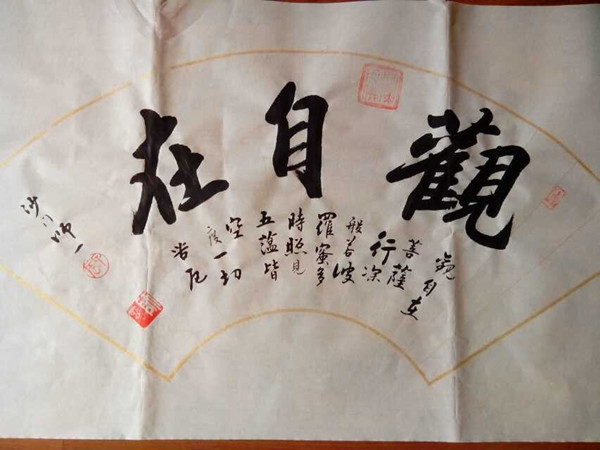 觀自在
觀自在
菩薩
行深
般若波
羅蜜多
時照見
五蘊皆
空
度一切
苦厄
沙门师一